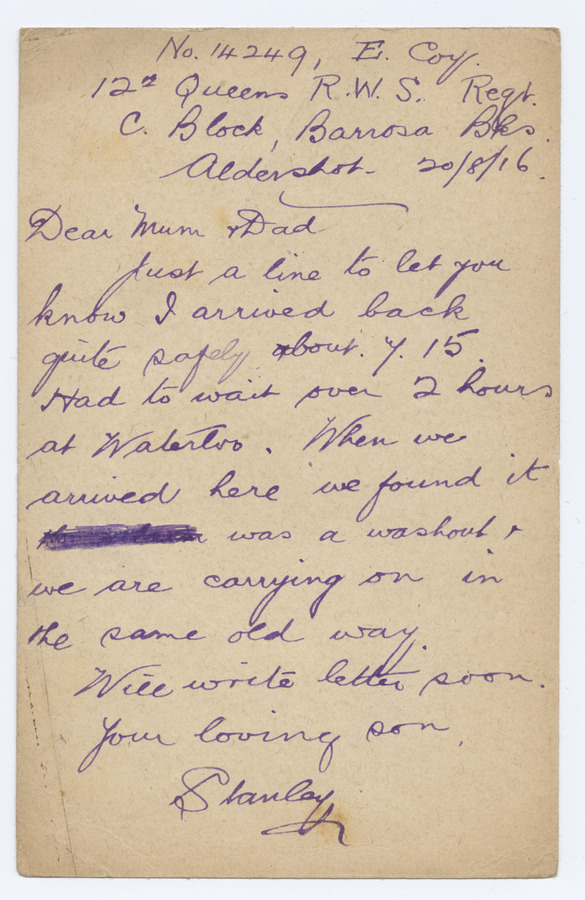 No. 14249, E. Coy.
12th Queens R.W.S. Regt.
C. Block, Barrosa Bks.
Aldershot. 20/8/16.
Dear Mum & Dad
Just a line to let you
know I arrived back
quite safely about. 7.15.
Had to wait over 2 hours
at Waterloo. When we
arrived here we found it
was a washout &
we are carrying on in
the same old way.
Will write letter soon.
Your loving son,
Stanley